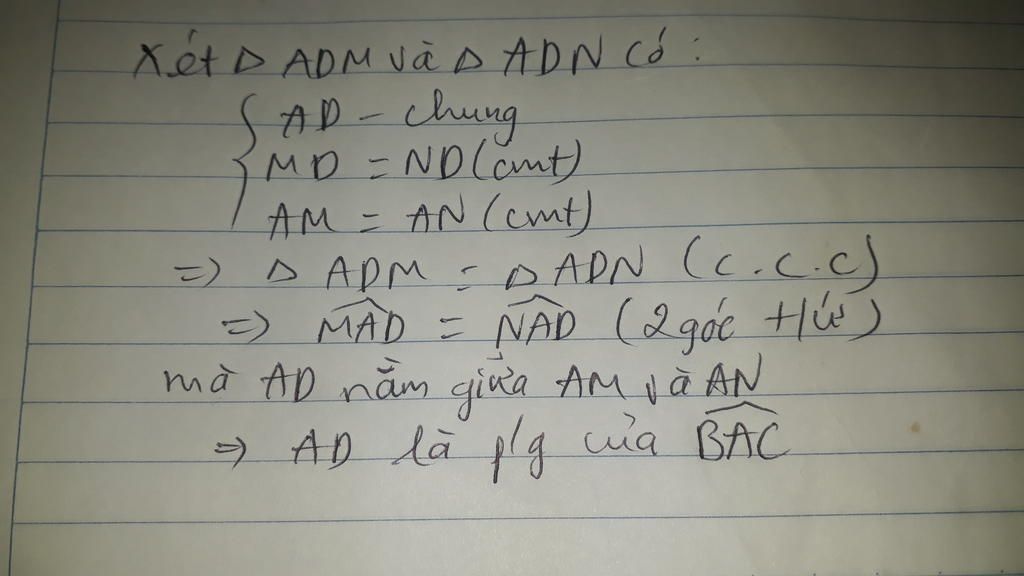 Xét Δ ADM và Δ ADN có:
{ AD - chung
MD = ND (cmt)
AM = AN (cmt)
=> Δ ADM = Δ ADN (c.c.c)
=> \widehat{MAD} = \widehat{NAD} (2 góc t/ứ)
mà AD nằm giữa AM và AN
=> AD là p/g của \widehat{BAC}